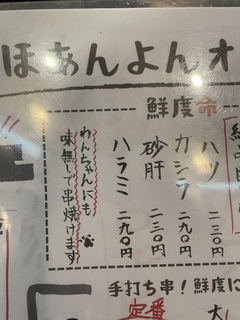 ほぁんよんオ
鮮度命
ハツ 二三〇円
ガシラ 二九〇円
砂肝 二三〇円
ハラミ 二九〇円
わんちゃんにも
味無しで串焼けます
手打ち串！鮮度に
定番